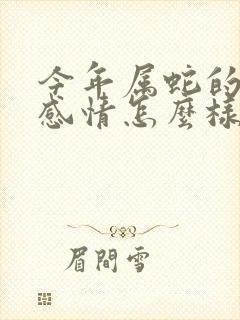 今年属蛇的
感情怎麽様
眉間雪